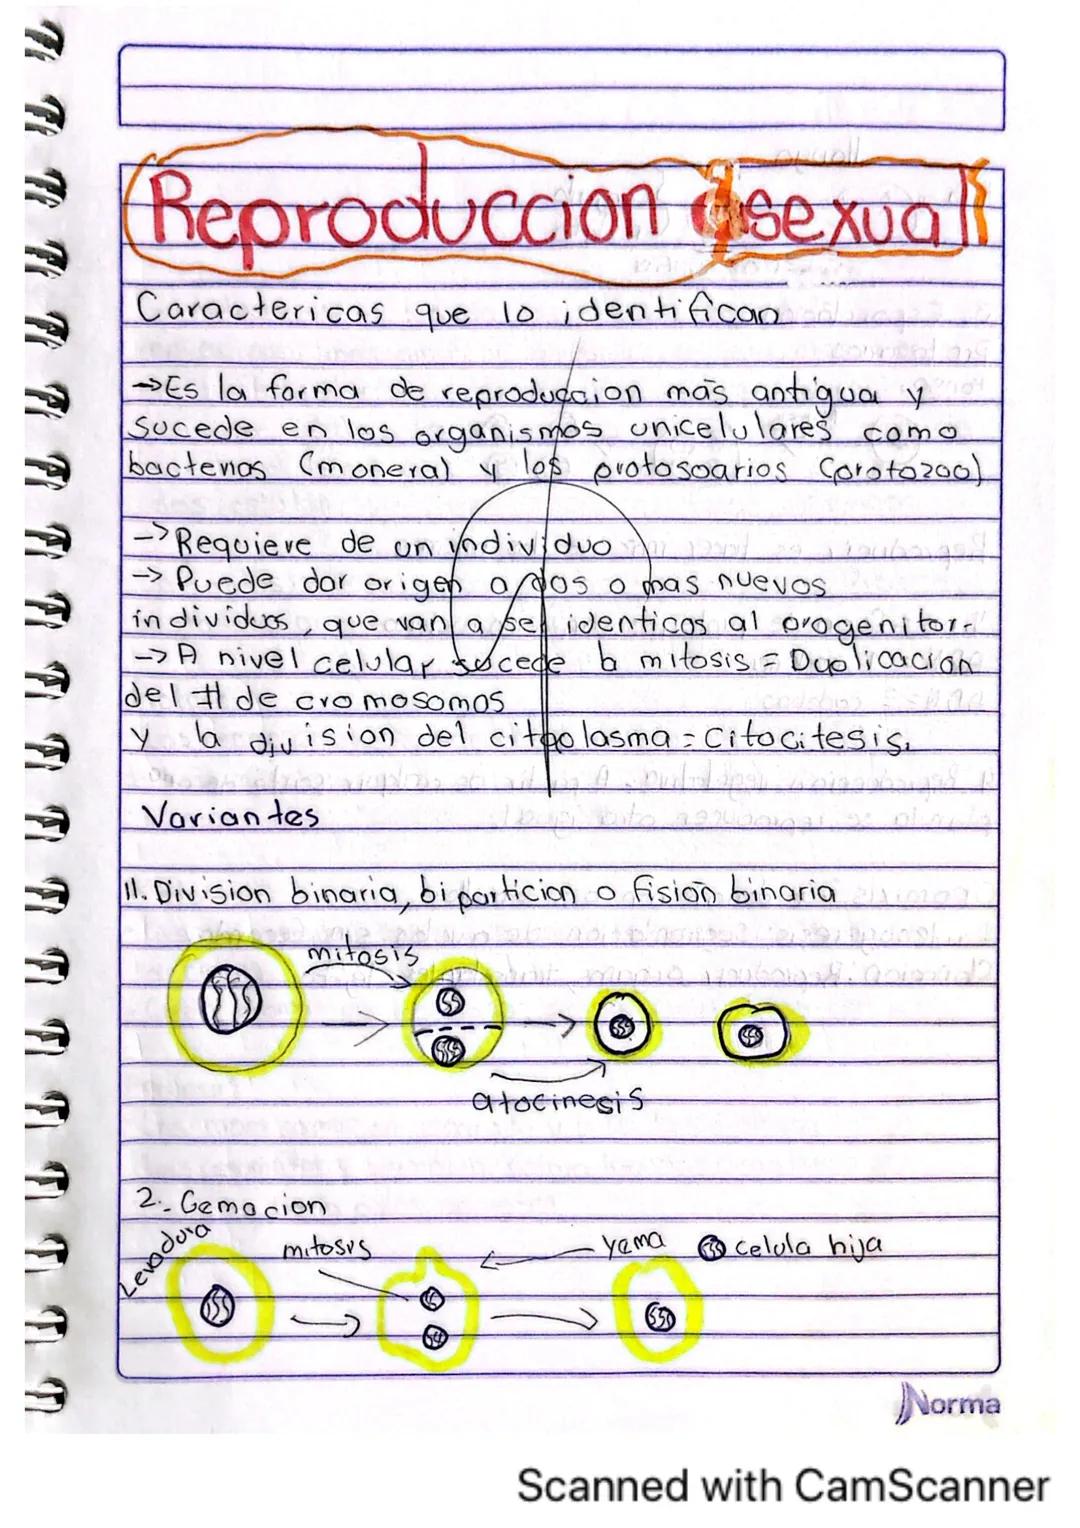 Reproduccion asexual
Caractericas que lo identifican
->Es la forma de reproduccion más antigua y
sucede en los organismos unicelulares como
bacterias (monera) y los protosoarios (protozoo)
-> Requiere de un individuo
-> Puede dar origen a dos o mas nuevos
individuos, que van a ser identicos al progenitor.
-> A nivel celular sucede la mitosis = Duplicacion
del # de cromosomos
y la division del citoplasma = Citocitesis.
Variantes
11. Division binaria, biparticion o fisión binaria
mitosis
citocinesis
2.- Gemacion
Levadura
mitosis
yema
celula hija
Norma
Scanned with CamScanner